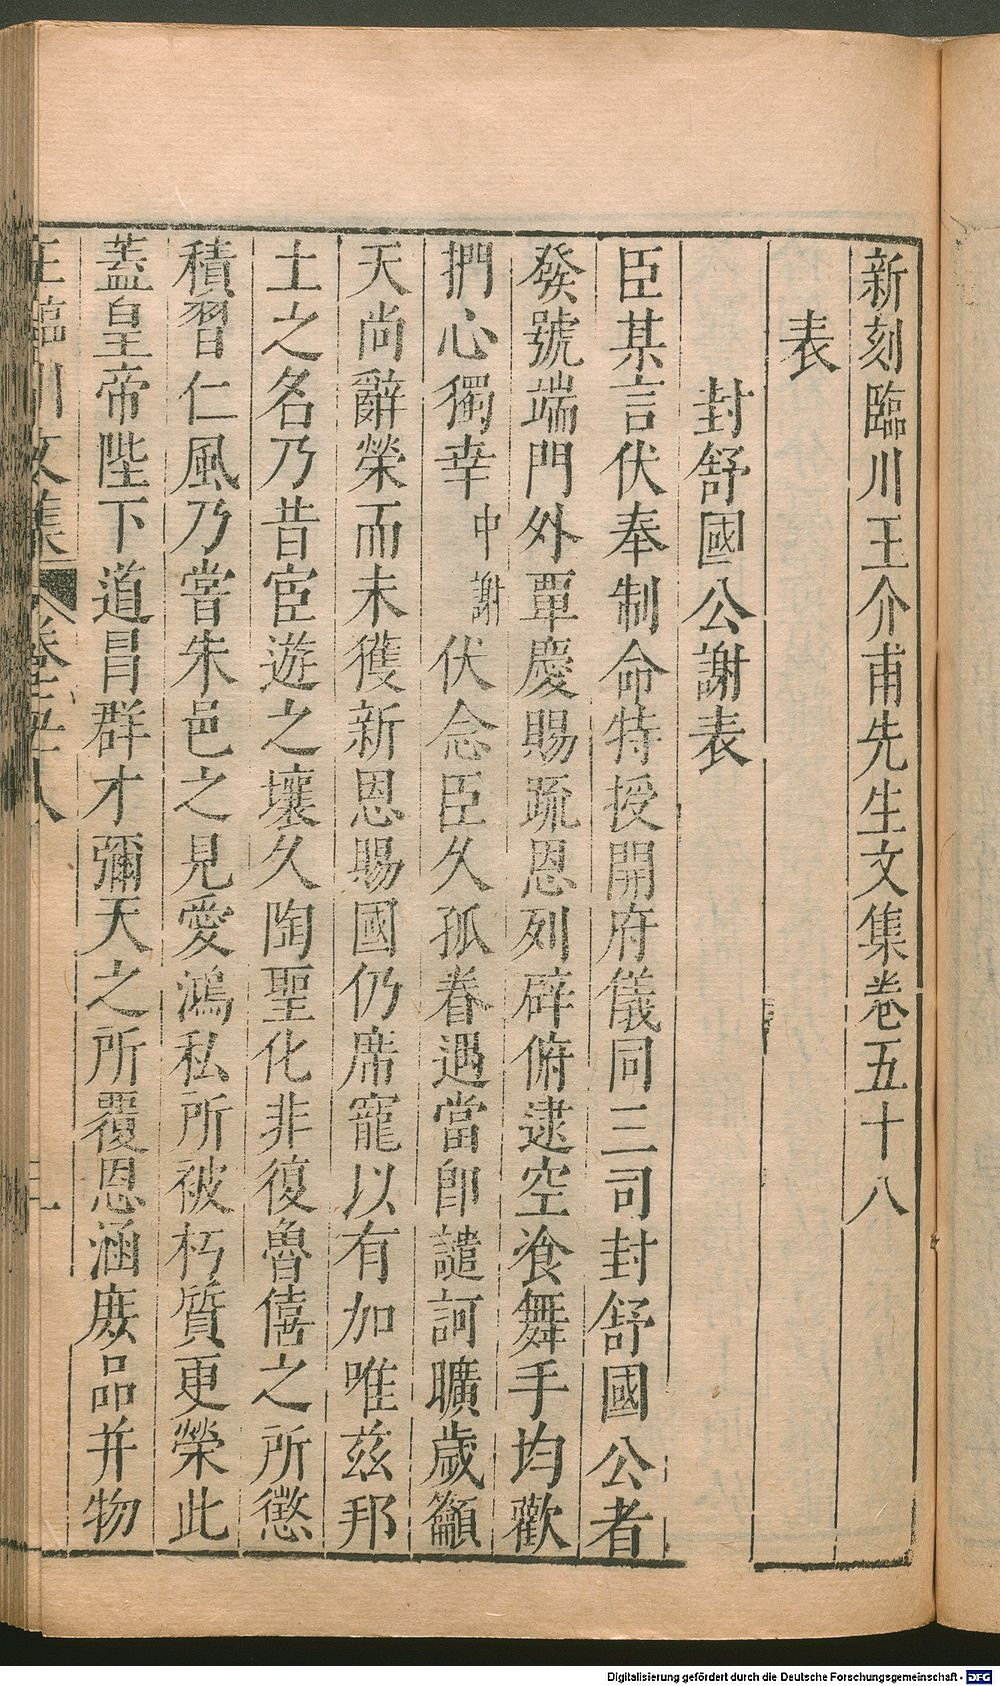 新刻臨川王介甫先生文集卷五十八
表
封舒國公謝表
臣某言伏奉制命特授開府儀同三司封舒國公者
發號端門外覃慶賜疏恩列辟俯逮空飡舞手均歡
捫心獨幸中謝伏念臣久孤眷遇當卽譴訶曠歲籲
天尚辭榮而未獲新恩賜國仍席寵以有加唯茲邦
土之名乃昔宦遊之壤久陶聖化非復魯僖之所懲
積習仁風乃嘗朱邑之見愛鴻私所被朽質更榮此
蓋皇帝陛下道冒群才彌天之所覆恩涵庶品并物
王臨川文集 卷五十八 一
Digitalisierung gefördert durch die Deutsche Forschungsgemeinschaft - DFG